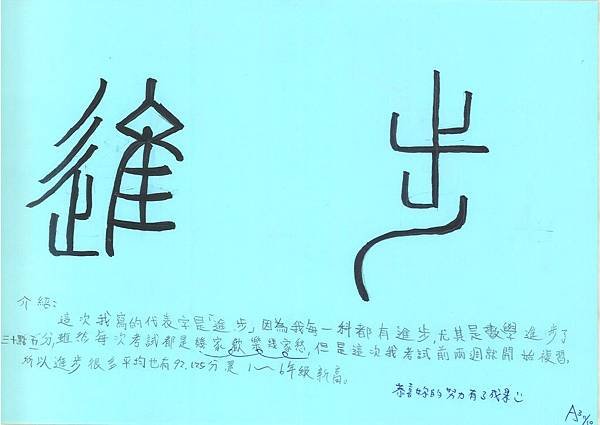 進步
介紹:
這次我寫的代表字是「進步」因為我每一科都有進步,尤其是數學進步了
三十點百分,雖然每次考試都是幾家歡樂幾家愁,但是這次我考試前兩週就開始複習,
所以進步很多平均也有92.125分是1～6年級新高。
恭喜妳的努力有了成果
A